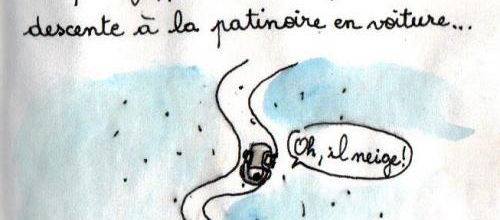 descente à la patinoire en voiture...
Oh, il neige!